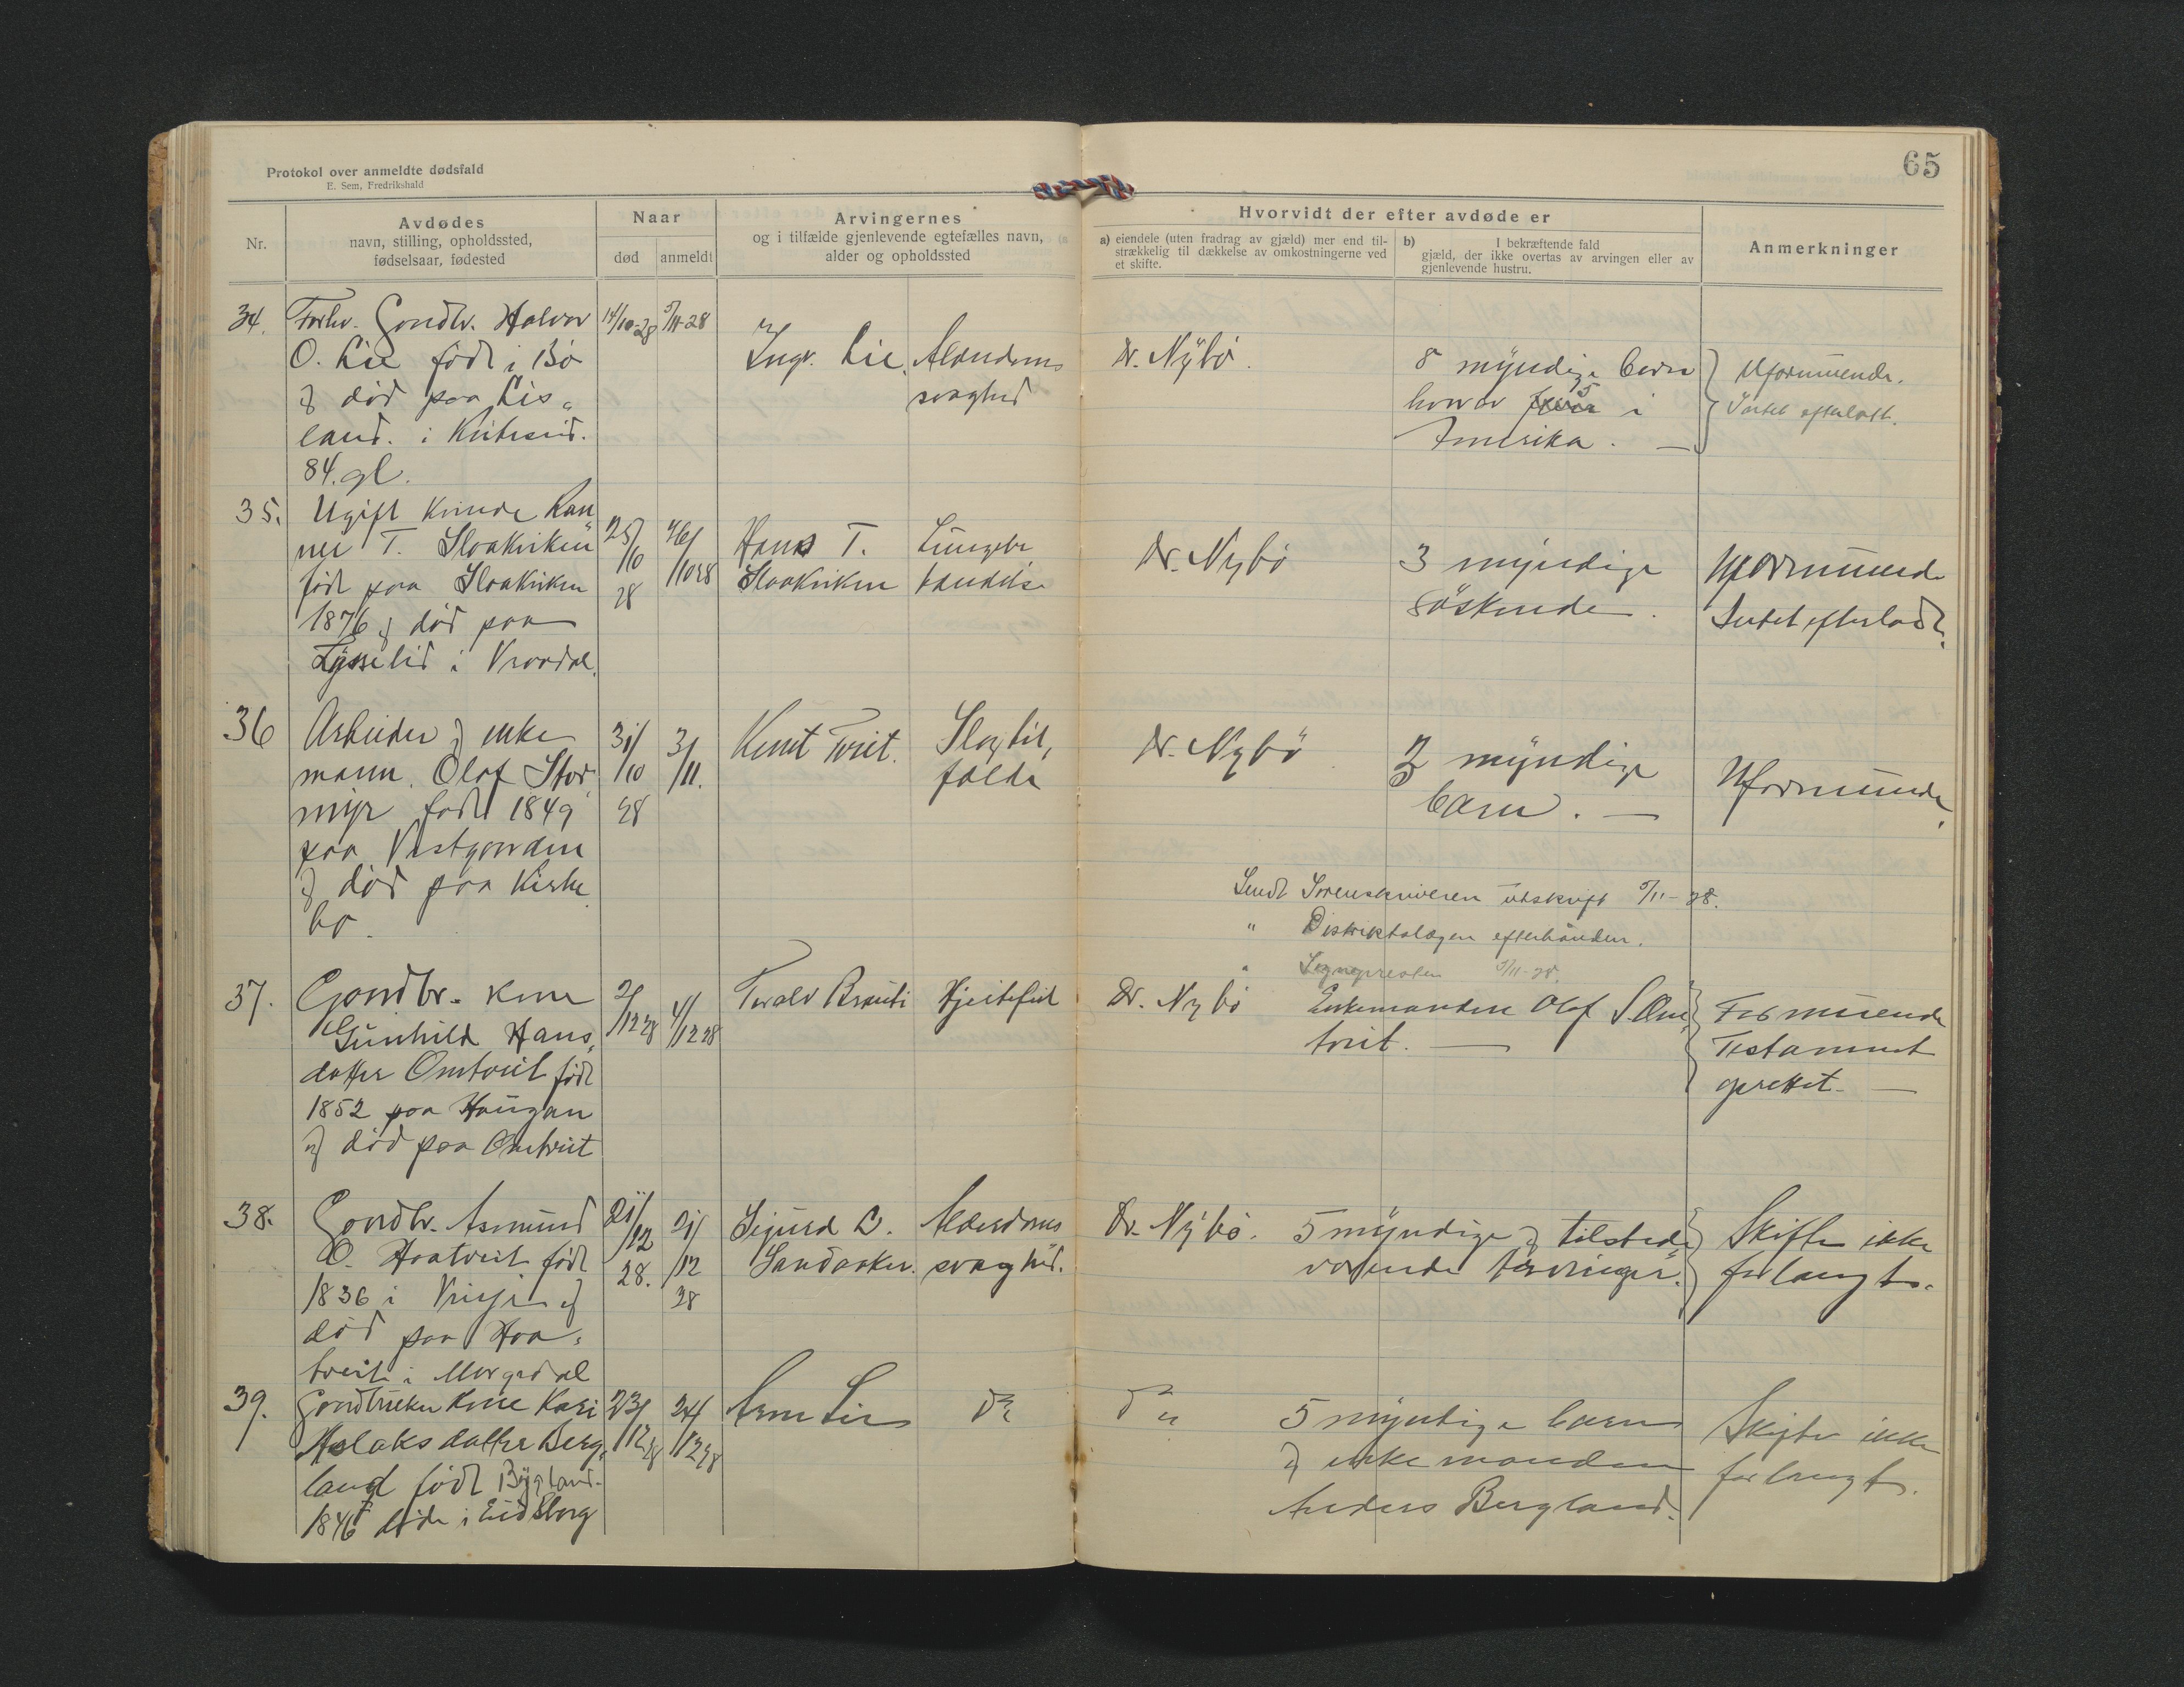 Protokol over anmeldte dødsfald
E. Sem, Fredrikshald
65
Nr.
Avdødes
navn, stilling, opholdssted,
fødselsaar, fødested
Naar
død
anmeldt
Arvingernes
og i tilfælde gjenlevende egtefælles navn,
alder og opholdssted
Hvorvidt der efter avdøde er
a) eiendele (uten fradrag av gjæld) mer end til-
strækkelig til dækkelse av omkostningerne ved
et skifte.
b) I bekræftende fald
gjæld, der ikke overtas av arvingen eller av
gjenlevende hustru.
Anmerkninger
34.
Forhv. Gaardbr. Halvor
O. Lie född i Bö
og död paa Lis-
land. i
84. gl.
14/10-28
5/11-28
Ingv. Lie.
Alderdoms
svaghed
Dr. Nybö.
8 myndige barn
hvorav 5 i
Amerika. —
Uformuende.
Intet efterlatt.
35.
Ugift kvinde Ran
nei T. Sloakviken
född paa Sloakviken
1876 og död paa
i Vraadal.
25/
/10
28
26/
/1028
Hans T.
Sloakviken
Lungebe
tændelse
Dr. Nybö
3 myndige
söskende.
Uformuende
Intet efterladt.
36
Arbeider og enke
mann. Olaf Stor
myr född 1849
paa Vestgaarden
og död paa Kirke
bö.
31/
/10
28
3/
/11.
Knut Tveit.
Slagtil,
fælde
Dr. Nybö
3 myndige
barn. —
Uformuende.
Sendt Sorenskriveren utskrift 5/11-28.
" Distriktslægen efterhånden.
" Sognepresten 5/11-28.
37.
Gaardbr. kone
Gunhild Hans,
datter Omtveit född
1852 paa Haugan
og död paa Omtveit
2/
/12 28
4/
/12 28
Toralv Brauti
Hjertefeil
Dr. Nybö
Enkemanden Olaf S. Om,
tveit. —
Formuende
Testament
oprettet —
38.
Gaardbr. Asmund
O. Haatveit född
1836 i og
död paa Haa-
tveit i Morgedal
21/
/12
28.
21/
/12
28
Sigurd L.
Sandaaker.
Alderdoms
svaghed.
Dr. Nybö.
5 myndige og tilstede
værende arvinger.
Skifte ikke
forlangt.
39.
Gaardbruker kone Kari
Aslaksdatter Berg,
land född Bygland.
1846 död i Eidsborg
23/
/12 28
24/
/12 28
do
do
5 myndige barn
og enkemanden
Anders Bergland.
Skifte ikke
forlangt.